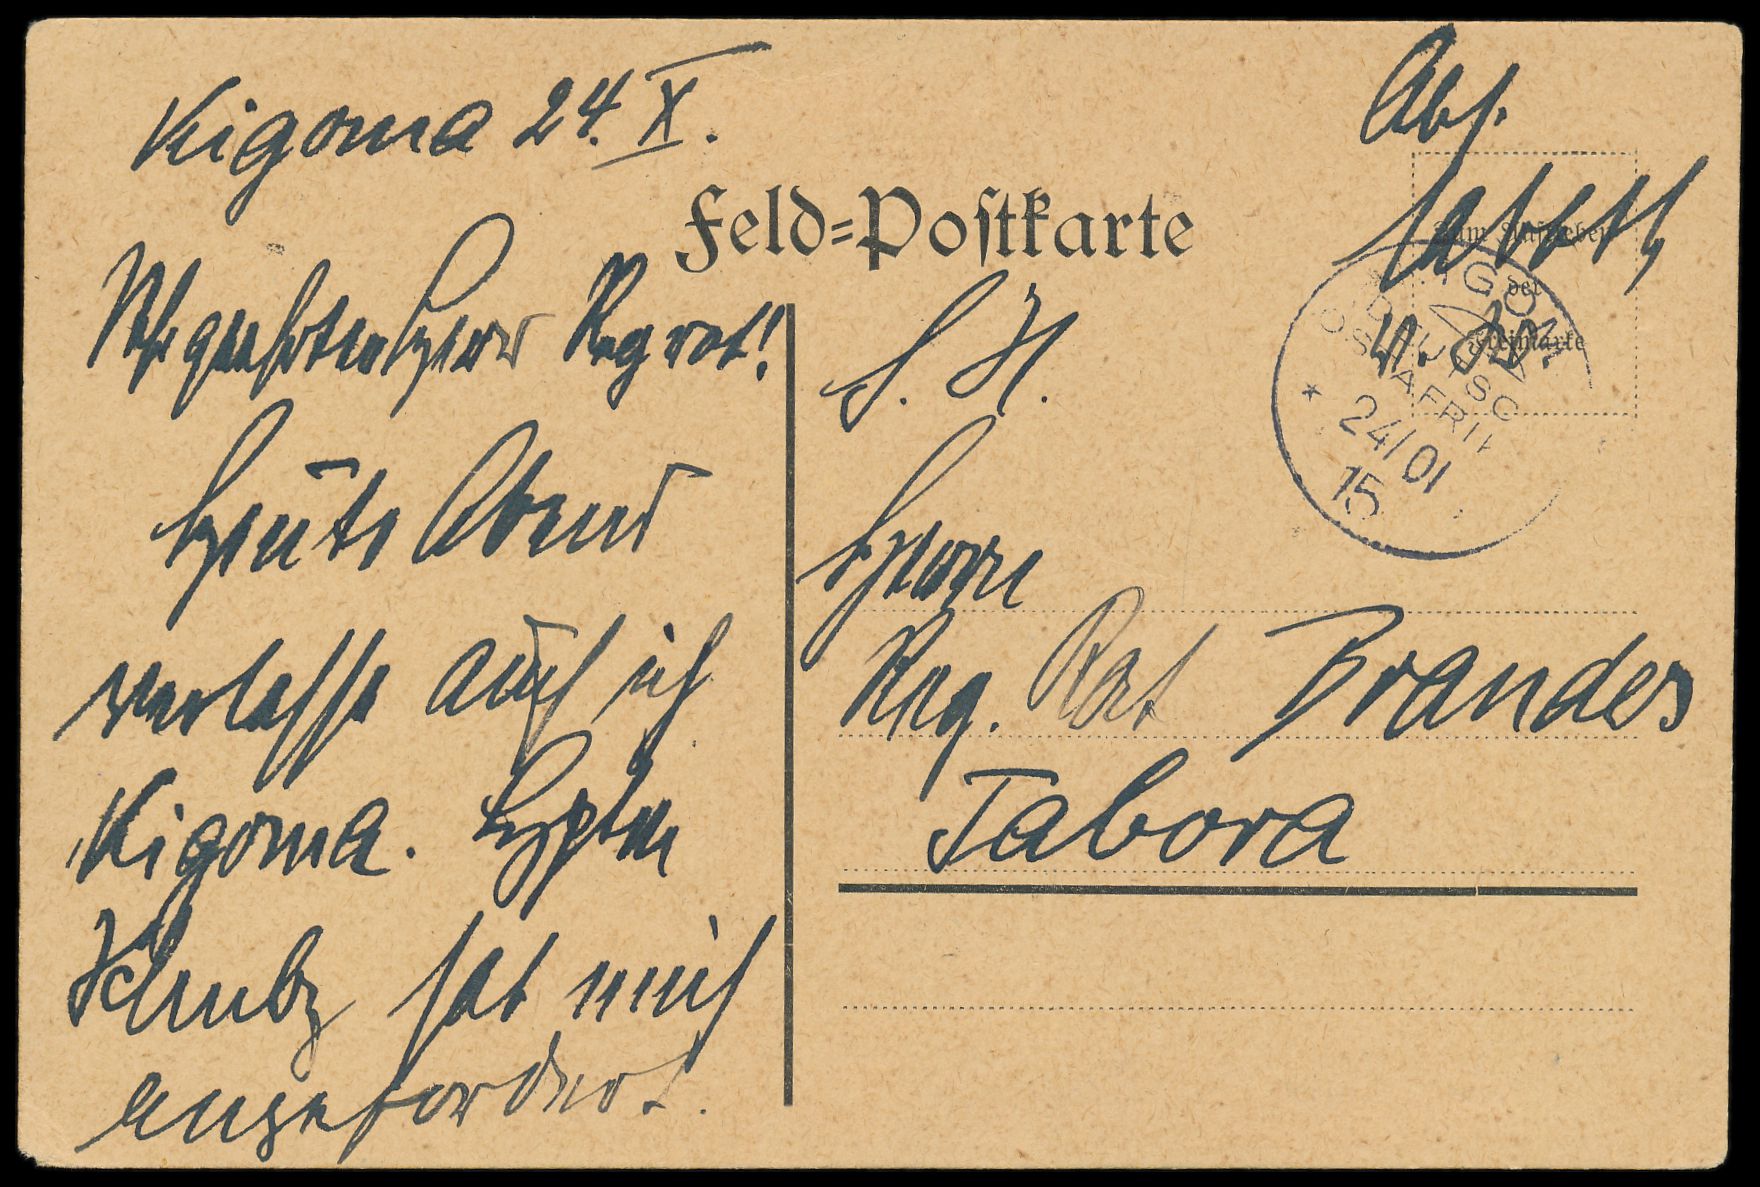 Kigoma 24. X.
Feld=Postkarte
Sehr geehrter Herr Reg rat!
Heute Abend
verlasse auch ich
Kigoma. Hptm
Schulz hat mich
angefordert.
Abs.
Zum Aufkleben
der
Freimarke
KIGOMA
DEUTSCH
OSTAFRIKA
* 24/01
15
S. H.
Herrn
Reg. Rat Brandes
Tabora